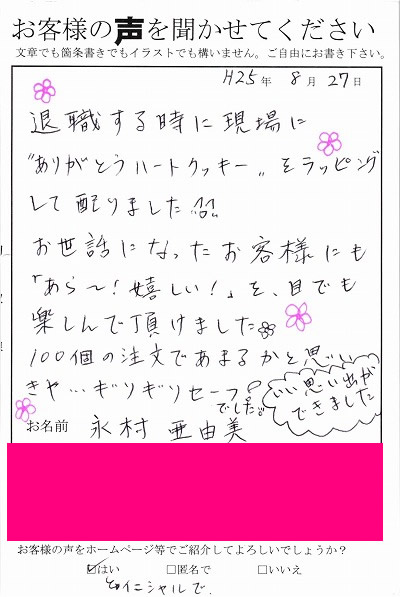 お客様の声を聞かせてください
文章でも箇条書きでもイラストでも構いません。ご自由にお書き下さい。
H25年 8月27日
退職する時に現場に
"ありがとうハートクッキー"をラッピング
して配りました
お世話になったお客様にも
「あら〜!嬉しい!」と、目でも
楽しんで頂けました。
100個の注文であまるかと思い
きや…ギリギリセーフ
でした。
いい思い出が
できました
お名前 永村 亜由美
お客様の声をホームページ等でご紹介してよろしいでしょうか?
☑はい □匿名で □いいえ
イニシャルで。